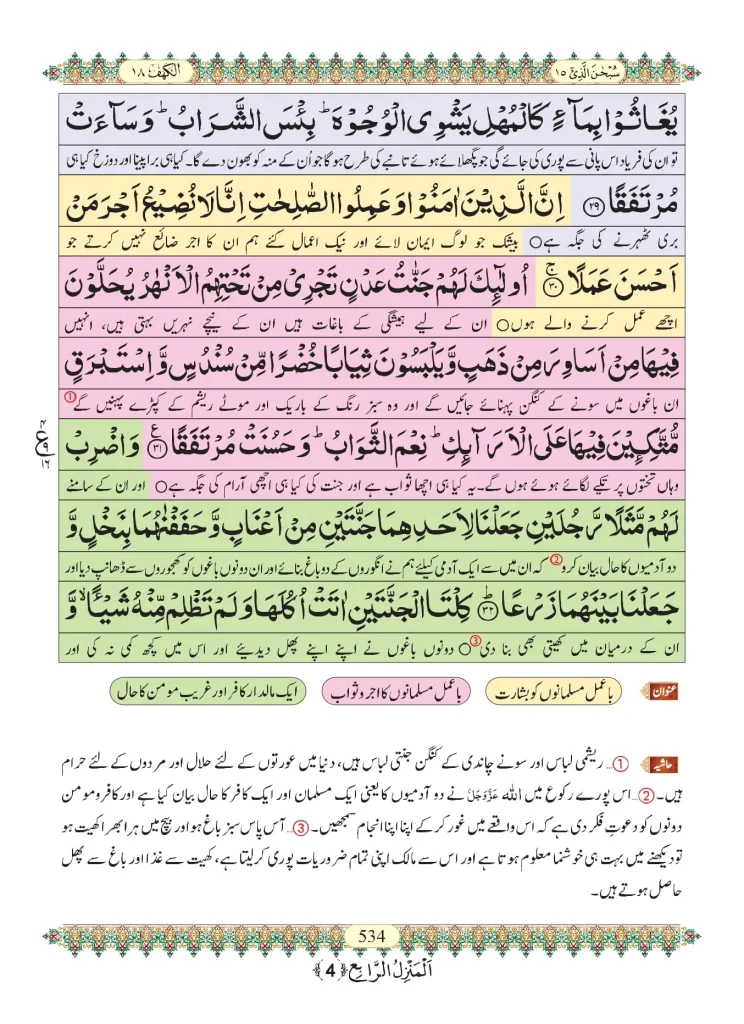 سُبْحٰنَ الَّذِیْۤ ۱۵
الكهف ۱۸
یُغَاثُوْا بِمَآءٍ كَالْمُهْلِ یَشْوِی الْوُجُوْهَ ؕ بِئْسَ الشَّرَابُ ؕ وَ سَآءَتْ
تو ان کی فریاد اس پانی سے پوری کی جائے گی جو پگھلائے ہوئے تانبے کی طرح ہوگا جو اُن کے منہ کو بھون دے گا۔ کیا ہی برا پینا اور دوزخ کیا ہی
مُرْتَفَقًا ﴿۲۹﴾ اِنَّ الَّذِیْنَ اٰمَنُوْا وَ عَمِلُوا الصّٰلِحٰتِ اِنَّا لَا نُضِیْعُ اَجْرَ مَنْ
بری ٹھہرنے کی جگہ ہے○ بیشک جو لوگ ایمان لائے اور نیک اعمال کئے ہم ان کا اجر ضائع نہیں کرتے جو
اَحْسَنَ عَمَلًا ﴿ۚ۳۰﴾ اُولٰٓىِٕكَ لَهُمْ جَنّٰتُ عَدْنٍ تَجْرِیْ مِنْ تَحْتِهِمُ الْاَنْهٰرُ یُحَلَّوْنَ
اچھے عمل کرنے والے ہوں○ ان کے لیے ہمیشگی کے باغات ہیں ان کے نیچے نہریں بہتی ہیں، انہیں
فِیْهَا مِنْ اَسَاوِرَ مِنْ ذَهَبٍ وَّ یَلْبَسُوْنَ ثِیَابًا خُضْرًا مِّنْ سُنْدُسٍ وَّ اِسْتَبْرَقٍ
ان باغوں میں سونے کے کنگن پہنائے جائیں گے اور وہ سبز رنگ کے باریک اور موٹے ریشم کے کپڑے پہنیں گے①
مُّتَّكِـِٕیْنَ فِیْهَا عَلَى الْاَرَآىِٕكِ ؕ نِعْمَ الثَّوَابُ ؕ وَ حَسُنَتْ مُرْتَفَقًا ﴿۳۱﴾ ع وَ اضْرِبْ
وہاں تختوں پر تکیے لگائے ہوئے ہوں گے۔ یہ کیا ہی اچھا ثواب ہے اور جنت کی کیا ہی اچھی آرام کی جگہ ہے○ اور ان کے سامنے
لَهُمْ مَّثَلًا رَّجُلَیْنِ جَعَلْنَا لِاَحَدِهِمَا جَنَّتَیْنِ مِنْ اَعْنَابٍ وَّ حَفَفْنٰهُمَا بِنَخْلٍ وَّ
دو آدمیوں کا حال بیان کرو② کہ ان میں سے ایک آدمی کیلئے ہم نے انگوروں کے دو باغ بنائے اور ان دونوں باغوں کو کھجوروں سے ڈھانپ دیا اور
جَعَلْنَا بَیْنَهُمَا زَرْعًا ﴿ؕ۳۲﴾ كِلْتَا الْجَنَّتَیْنِ اٰتَتْ اُكُلَهَا وَ لَمْ تَظْلِمْ مِّنْهُ شَیْــٴًـا ۙ وَّ
ان کے درمیان میں کھیتی بھی بنا دی③○ دونوں باغوں نے اپنے اپنے پھل دیدیئے اور اس میں کچھ کمی نہ کی اور
عنوان باعمل مسلمانوں کو بشارت باعمل مسلمانوں کا اجر و ثواب ایک مالدار کافر اور غریب مومن کا حال
حاشیہ ①… ریشمی لباس اور سونے چاندی کے کنگن جنتی لباس ہیں، دنیا میں عورتوں کے لئے حلال اور مردوں کے لئے حرام
ہیں۔ ②… اس پورے رکوع میں اللہ عَزَّوَجَلَّ نے دو آدمیوں کا یعنی ایک مسلمان اور ایک کافر کا حال بیان کیا ہے اور کافر و مومن
دونوں کو دعوتِ فکر دی ہے کہ اس واقعے میں غور کر کے اپنا اپنا انجام سمجھیں۔ ③… آس پاس سبز باغ ہو اور بیچ میں ہرا بھرا کھیت ہو
تو دیکھنے میں بہت ہی خوشنما معلوم ہوتا ہے اور اس سے مالک اپنی تمام ضروریات پوری کرلیتا ہے، کھیت سے غذا اور باغ سے پھل
حاصل ہوتے ہیں۔
534
اَلْمَنْزِلُ الرَّابِع ﴿4﴾